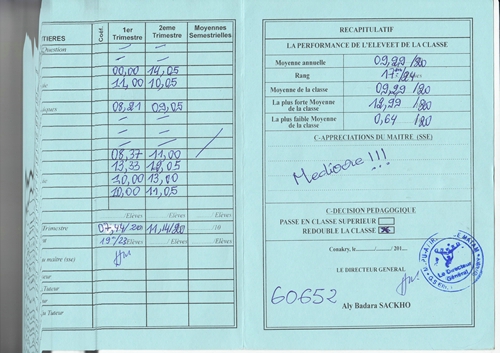 TIERES Coef. 1er Trimestre 2eme Trimestre Moyennes Semestrielles
Question — —
— —
00,00 14,05
11,00 10,05
— —
08,21 09,05
— —
— —
— —
08,37 11,00
13,33 12,05
10,00 13,00
10,00 11,05
/Elèves /Elèves /Elèves
Trimestre 07,44/20 11,14/20 /10
19e/23 Elèves /Elèves /Elèves
maître (sse)
Tuteur
u Tuteur
RECAPITULATIF
LA PERFORMANCE DE L'ELEVEET DE LA CLASSE
Moyenne annuelle 09,29/20
Rang 17e/24
Moyenne de la classe 09,29/20
La plus forte Moyenne de la classe /20
La plus faible Moyenne de la classe 0,64/20
C-APPRECIATIONS DU MAITRE (SSE)
Mediocre!!!
C-DECISION PEDAGOGIQUE
PASSE EN CLASSE SUPERIEUR
REDOUBLE LA CLASSE X
Conakry, le......../......../201....
LE DIRECTEUR GENERAL
Le Directeur
Général
60652
Aly Badara SACKHO